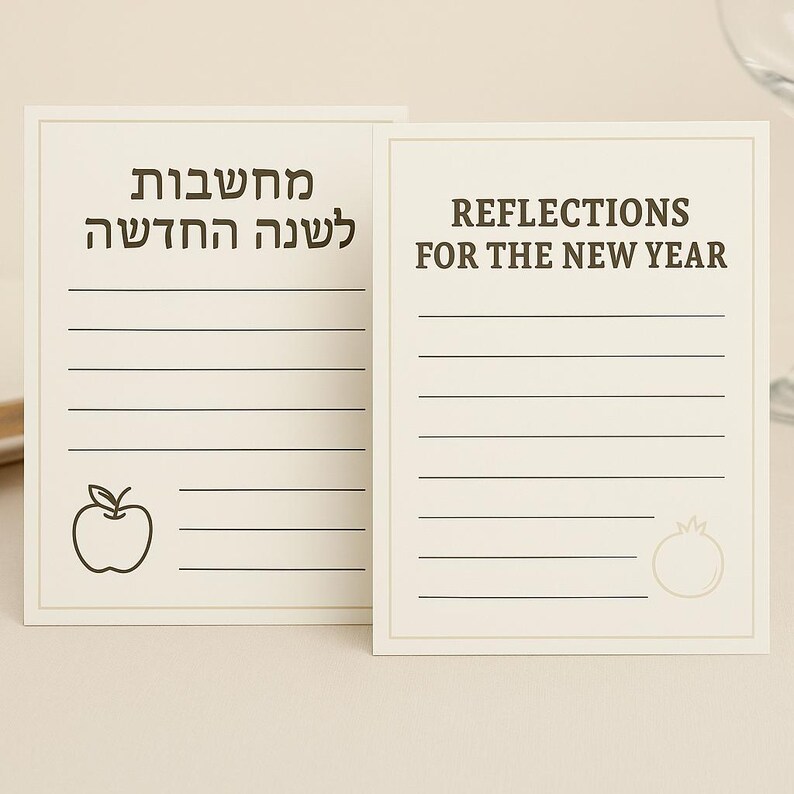 מחשבות
לשנה החדשה
REFLECTIONS
FOR THE NEW YEAR